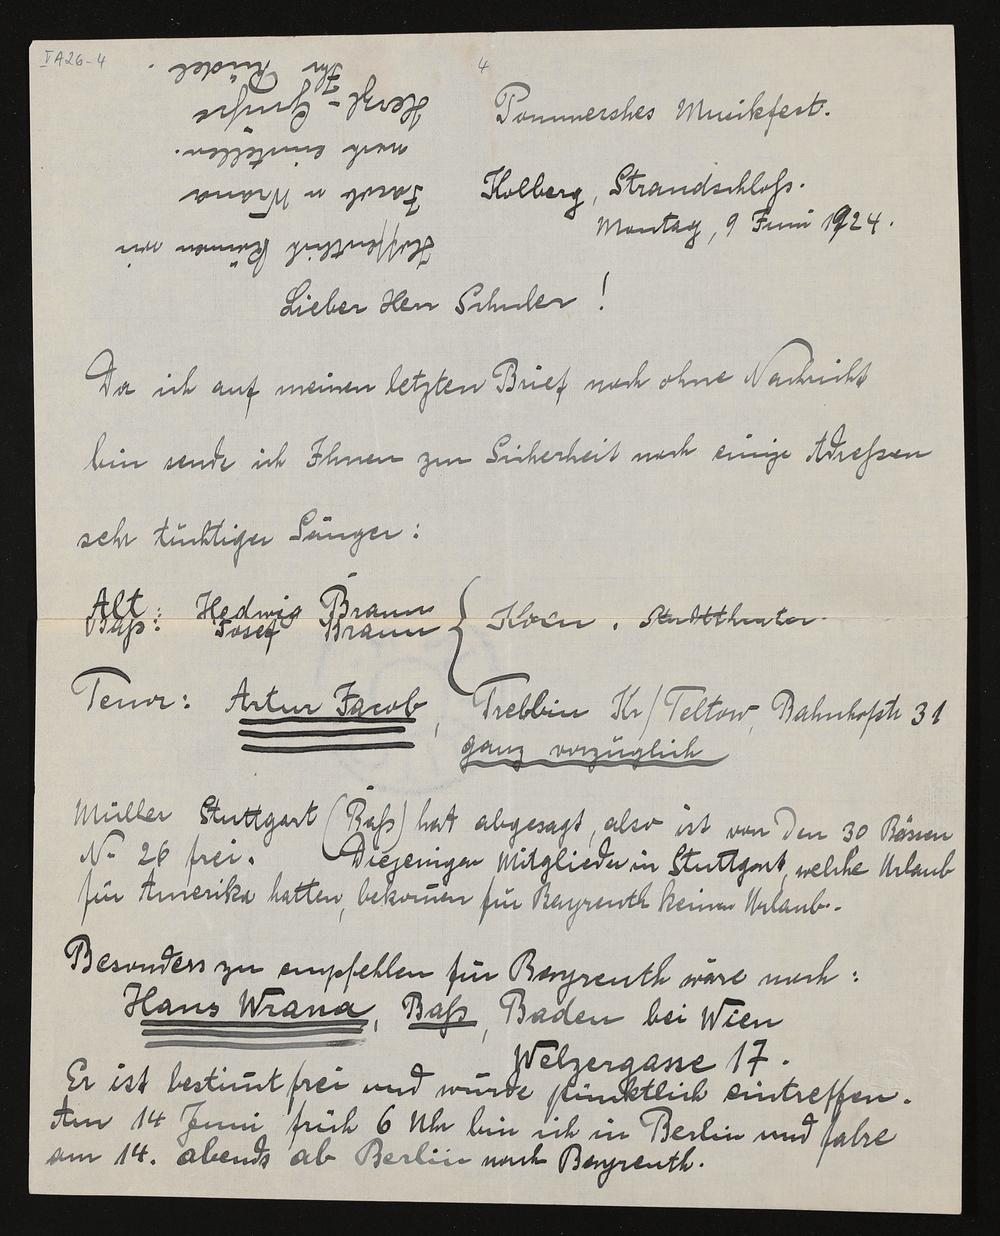 VA26-4
4
Pommersches Musikfest.
Kolberg, Strandschloß.
Montag, 9 Juni 1924.
Lieber Herr Schuler!
Da ich auf meinen letzten Brief noch ohne Nachricht
bin sende ich Ihnen zur Sicherheit noch einige Adreßen
sehr tüchtiger Sänger:
Alt: Hedwig Braun
Baß: Josef Braun
Stadttheater.
Tenor: Artur Jacob, Trebbin Kr/Teltow, Bahnhofstr 31
ganz vorzüglich
Müller Stuttgart (Baß) hat abgesagt, also ist von den 30 Bässen
No 26 frei. Diejenigen Mitglieder in Stuttgart, welche Urlaub
für Amerika hatten, bekom̄en für Bayreuth keinen Urlaub.-
Besonders zu empfehlen für Bayreuth wäre noch:
Hans Wrana, Baß, Baden bei Wien
Welzergasse 17.
Er ist bestim̄t frei und würde pünktlich eintreffen.
Am 14 Juni früh 6 Uhr bin ich in Berlin und fahre
am 14. abends ab Berlin nach Bayreuth.
Hoffentlich können wir
Jacob u Wrana
noch einstellen.
Herzl-Grüße
Ihr Rüdel.